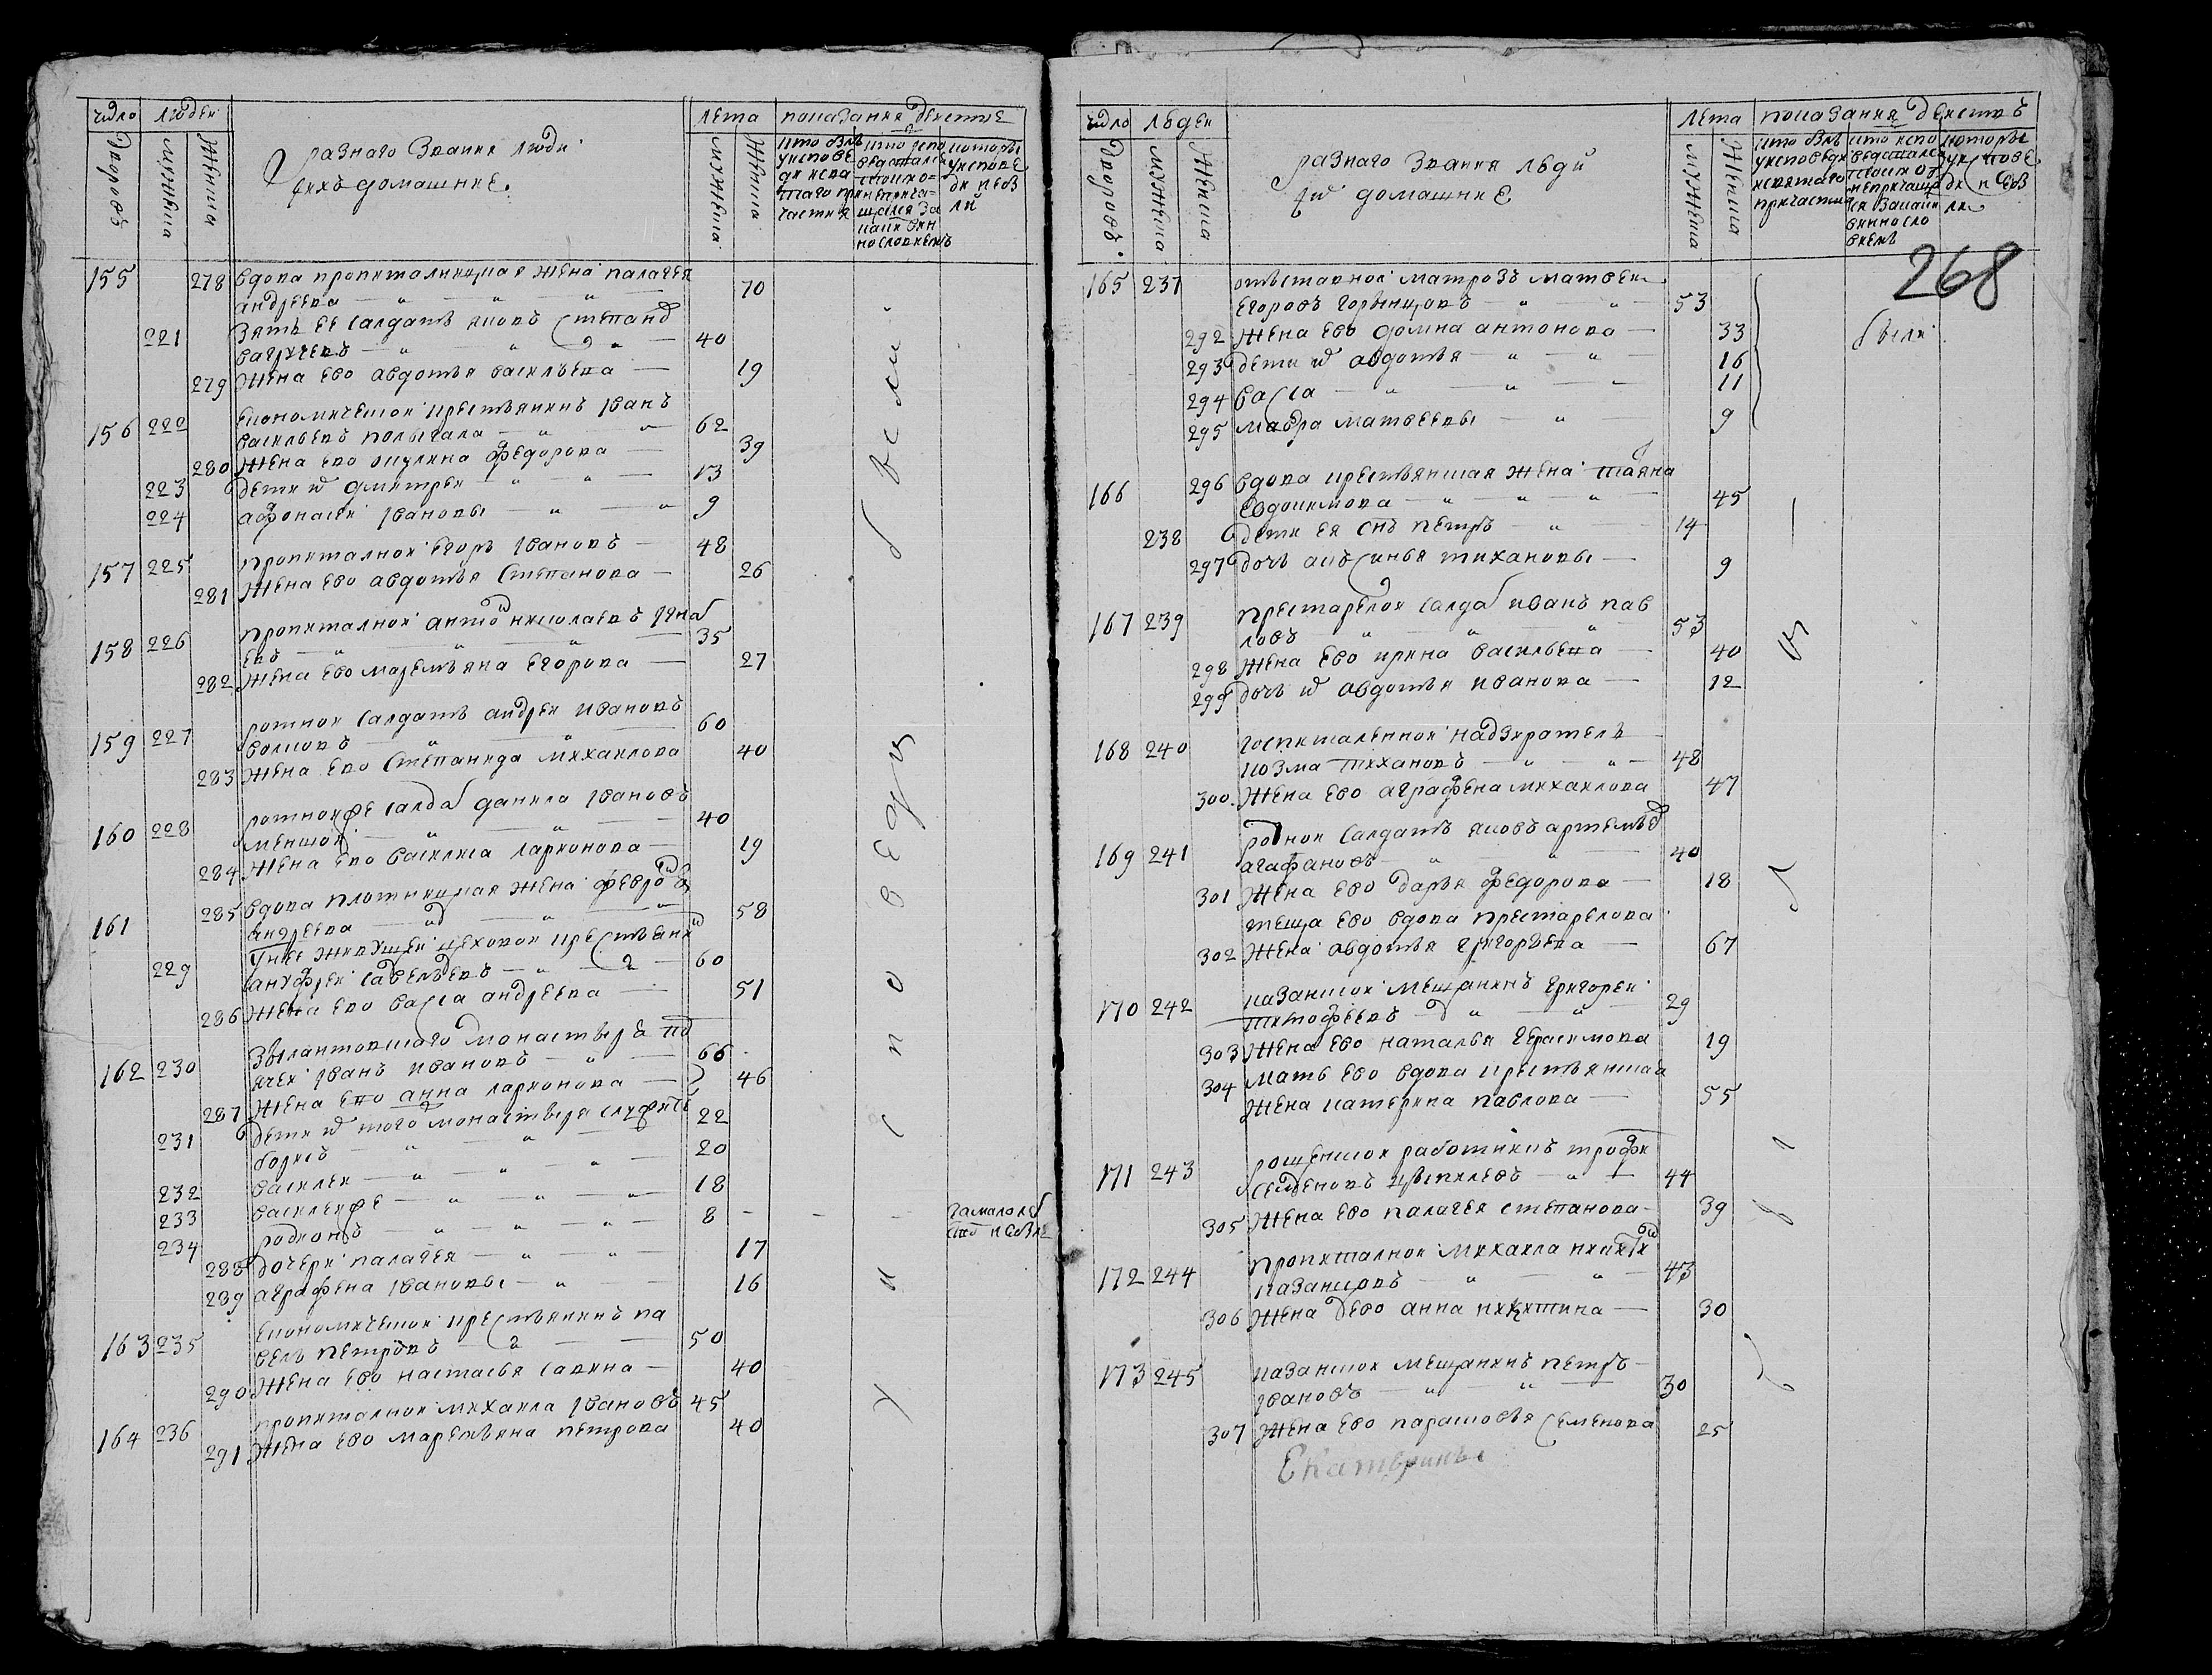 число людеи
дворовъ
мужеска
женска
разнаго звания люди
сихъ домашние
лета
мужеска
женска
показание деистие
155 278 вдова пропиталницкая жена палагея
андреева 70
221 зять ее салдатъ яковъ степанов
40
279 жена ево авдотья васильева 19
156 222 економическои крестьянинъ иванъ
васильевъ 62
280 жена ево акулина федорова 39
223 дети их дмитреи 13
224 афонасеи ивановы 9
157 225 пропиталнои егоръ ивановъ 48
281 жена ево авдотья степанова 26
158 226 пропиталнои антон николаевъ
евъ 35
282 жена ево маремьяна егорова 27
159 227 ротнои салдатъ андреи ивановъ
волковъ 60
283 жена ево степанида михаилова 40
160 228 ротнои же салдат данила ивановъ
меншои 40
284 жена ево василиса ларионова 19
161 285 вдова плотницкая жена
андреева 58
у нее живущеи цеховои крестьянин
229 ануфреи савельевъ 60
286 жена ево васса андреева 51
162 230 зилантовскаго монастыря под
ячеи иванъ ивановъ 66
287 жена ево анна ларионова 46
231 дети их того монастыря служите
борисъ 22
232 василеи 20
233 василеи же 18
234 родионъ 8
за малолет
ством не были
288 дочери палагея 17
289 аграфена ивановы 16
163 235 економическои крестьянинъ па
велъ петровъ 50
290 жена ево настасья савина 40
164 236 пропиталнои михаила ивановъ 45
291 жена ево маремьяна петрова 40
у исповеди были
число людеи
дворовъ
мужеска
женска
разнаго звания люди
их домашние
лета
мужеска
женска
показания деиствъ
268
165 237 отставнои матрозъ матвеи
егоровъ 53
292 жена ево домна антонова 33
293 дети их авдотья 16
294 васса 11
295 мавра матвеевы 9
были
166 296 вдова крестьянская жена татьяна
евдокимова 45
238 дети ея снъ петръ 14
297 дочь аксинья тихановы 9
167 239 престарелои салдат иванъ пав
ловъ 53
298 жена ево ирина васильева 40
299 дочь их авдотья иванова 12
168 240 госпитальнои надзиратель
козма тихановъ 48
300 жена ево аграфена михаилова 47
169 241 ротнои салдатъ яковъ артемьев
агафановъ 40
301 жена ево дарья федорова 18
теща ево вдова престарелова
302 жена авдотья григорьева 67
170 242 казанскои мещанинъ григореи
тимофеевъ 29
303 жена ево наталья герасимова 19
304 мать ево вдова крестьянская
жена катерина павлова 55
171 243 рощенскои работникъ трофи
семеновъ 44
305 жена ево палагея степанова 39
172 244 пропиталнои михаила никитин
казанцовъ 43
306 жена ево анна никитина 30
173 245 казанскои мещанинъ петръ
ивановъ 30
307 жена ево парасковья семенова 25
Екатерины